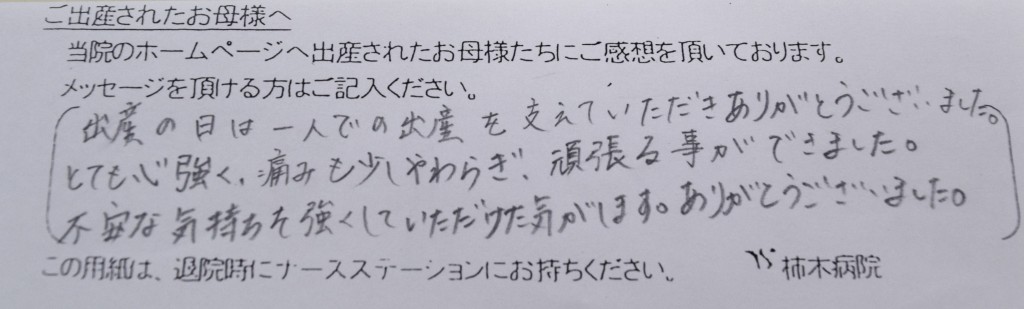 ご出産されたお母様へ
当院のホームページへ出産されたお母様たちにご感想を頂いております。
メッセージを頂ける方はご記入ください。
出産の日は一人での出産を支えていただきありがとうございました。
とても心強く、痛みも少しやわらぎ、頑張る事ができました。
不安な気持ちを強くしていただけた気がします。ありがとうございました。
この用紙は、退院時にナースステーションにお持ちください。 柿木病院